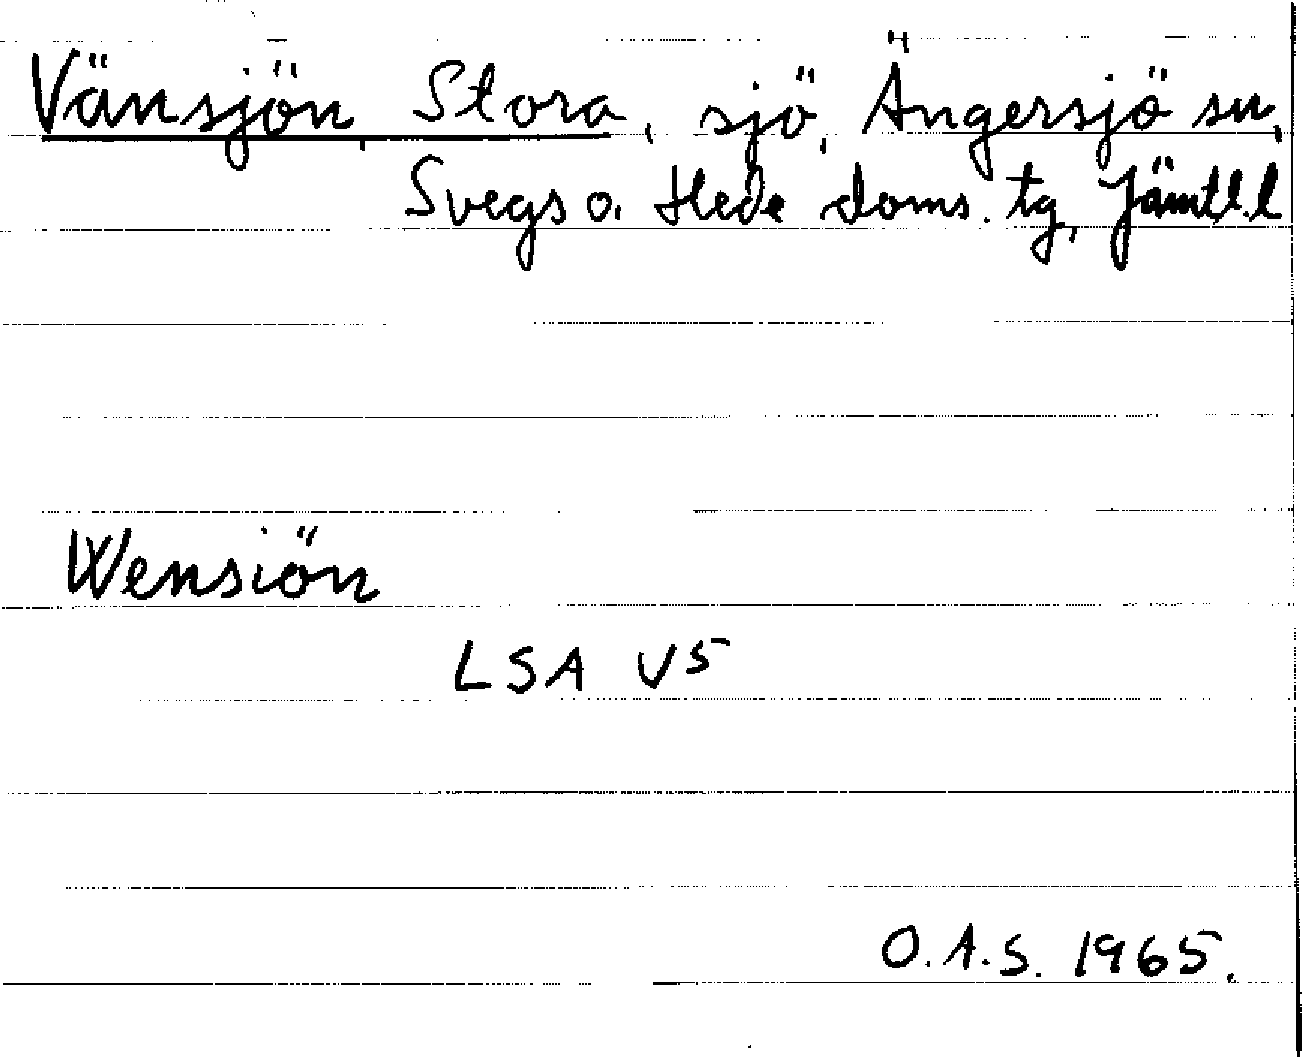 Vänsjön, Stora, sjö, Ängersjö sn,
Svegs o. Hede doms. tg, Jämtl. l
Wensiön
LSA V5
O.A.S. 1965.